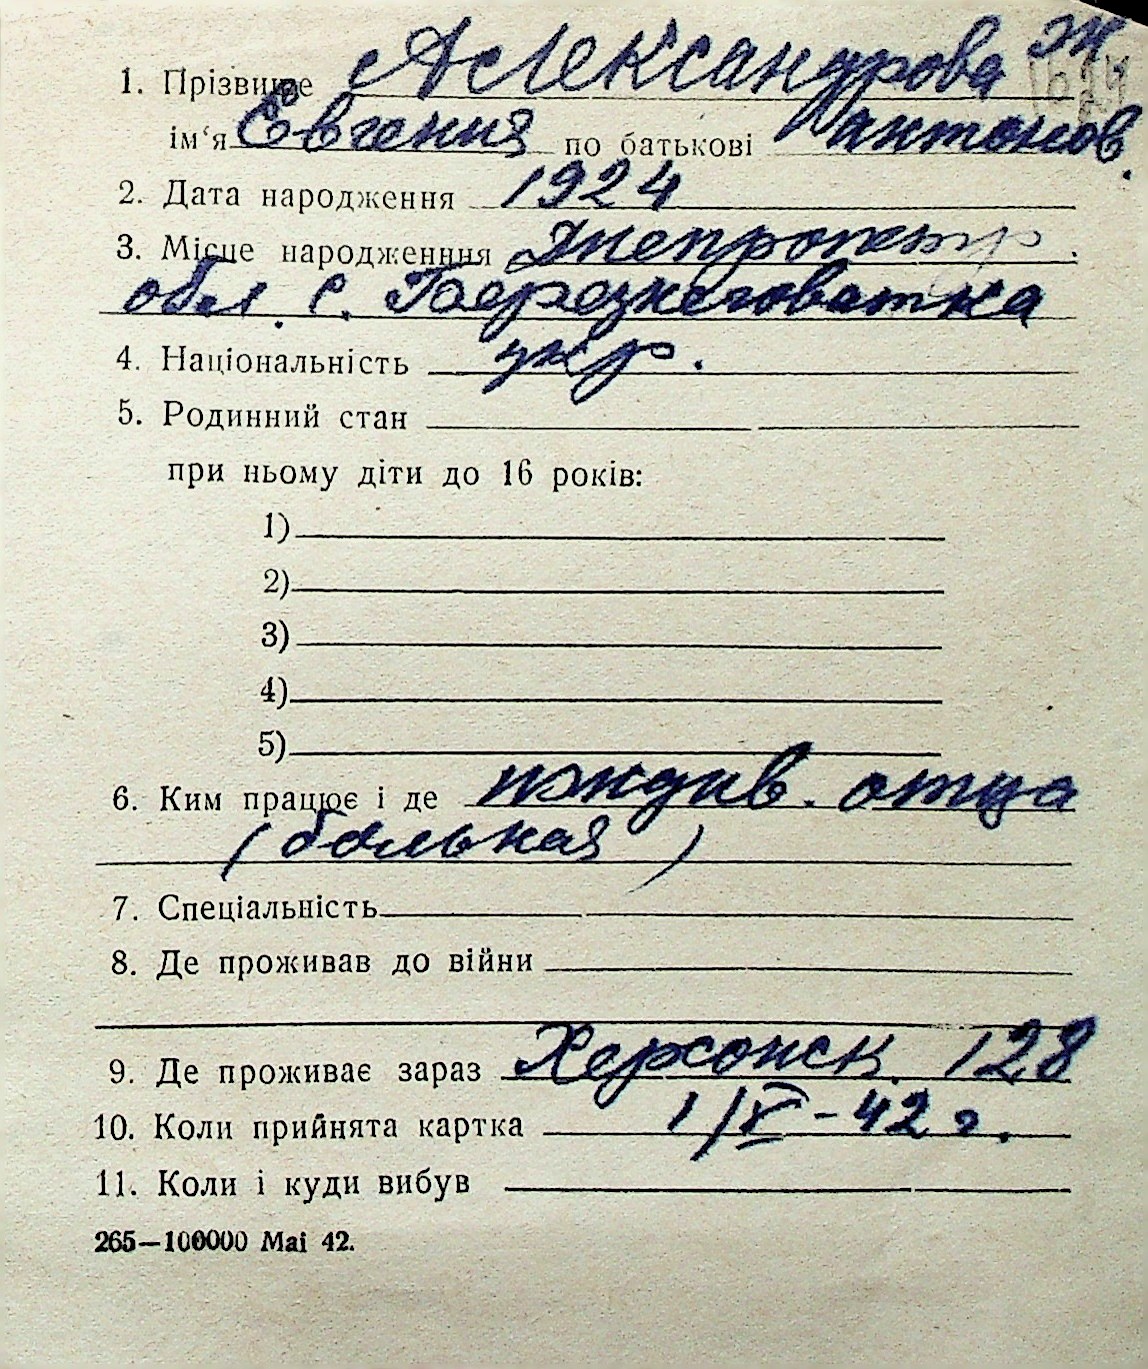 1. Прізвище Александрова Ж.
ім'я Евгения по батькові Антонов.
2. Дата народження 1924
3. Місце народженння Днепропетр.
обл. с. Березнеговатка
4. Національність укр.
5. Родинний стан
при ньому діти до 16 років:
1)
2)
3)
4)
5)
6. Ким працює і де иждив. отца
(больная)
7. Спеціальність
8. Де проживав до війни
9. Де проживає зараз Херсонск. 128
10. Коли прийнята картка 1/V-42 г.
11. Коли і куди вибув
265—100000 Mai 42.